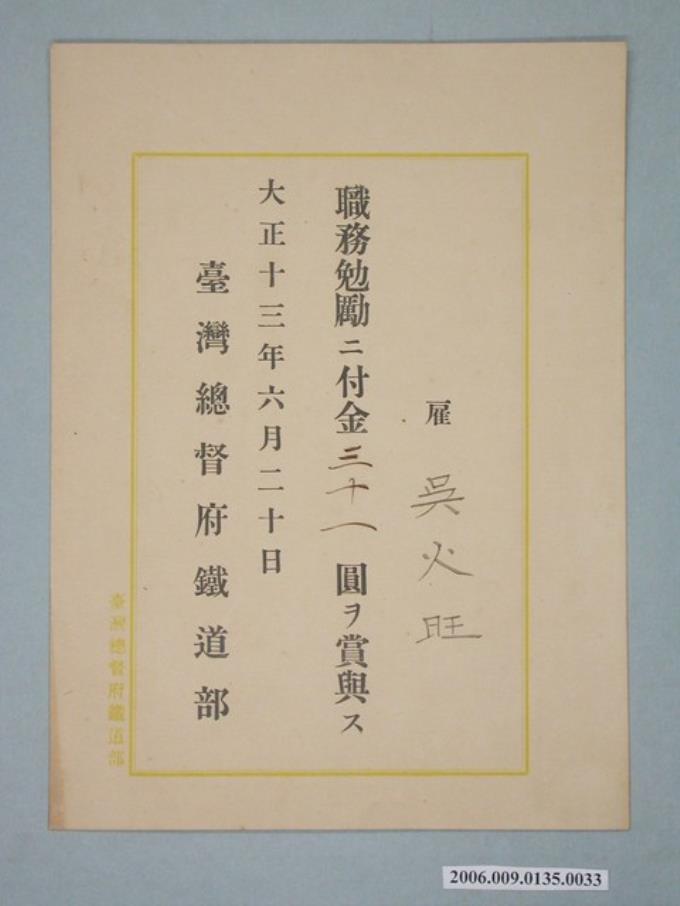 雇 吳火旺
職務勉勵ニ付金三十一圓ヲ賞與ス
大正十三年六月二十日
臺灣總督府鐵道部
臺灣總督府鐵道部
2006.009.0135.0033